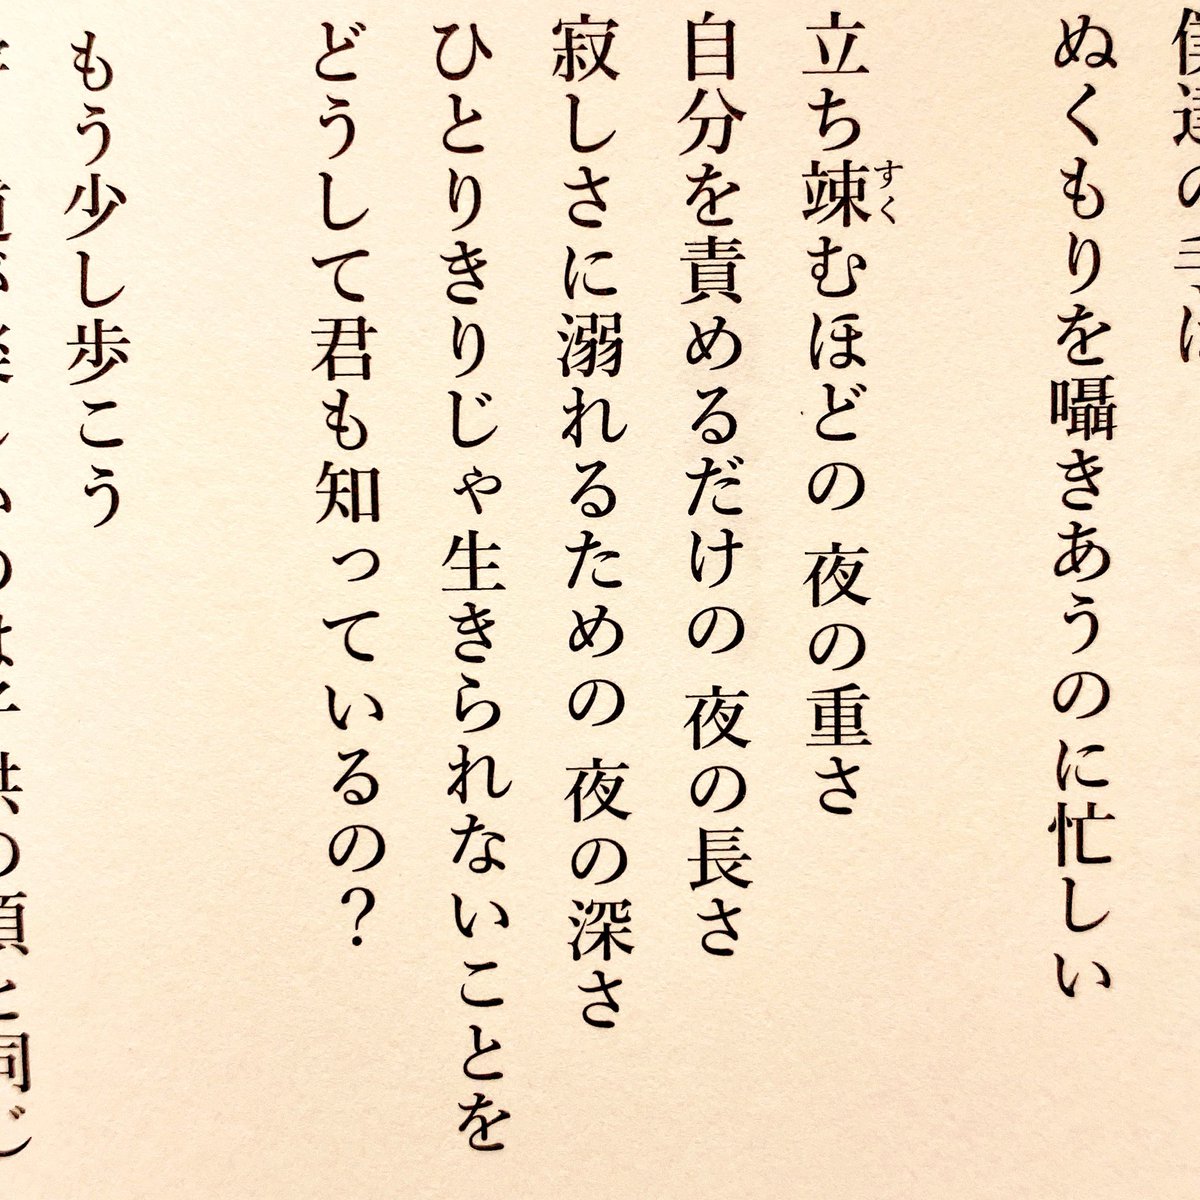 僕達の手は
ぬくもりを囁きあうのに忙しい
立ち竦むほどの 夜の重さ
すく
自分を責めるだけの 夜の長さ
寂しさに溺れるための 夜の深さ
ひとりきりじゃ生きられないことを
どうして君も知っているの？
もう少し歩こう